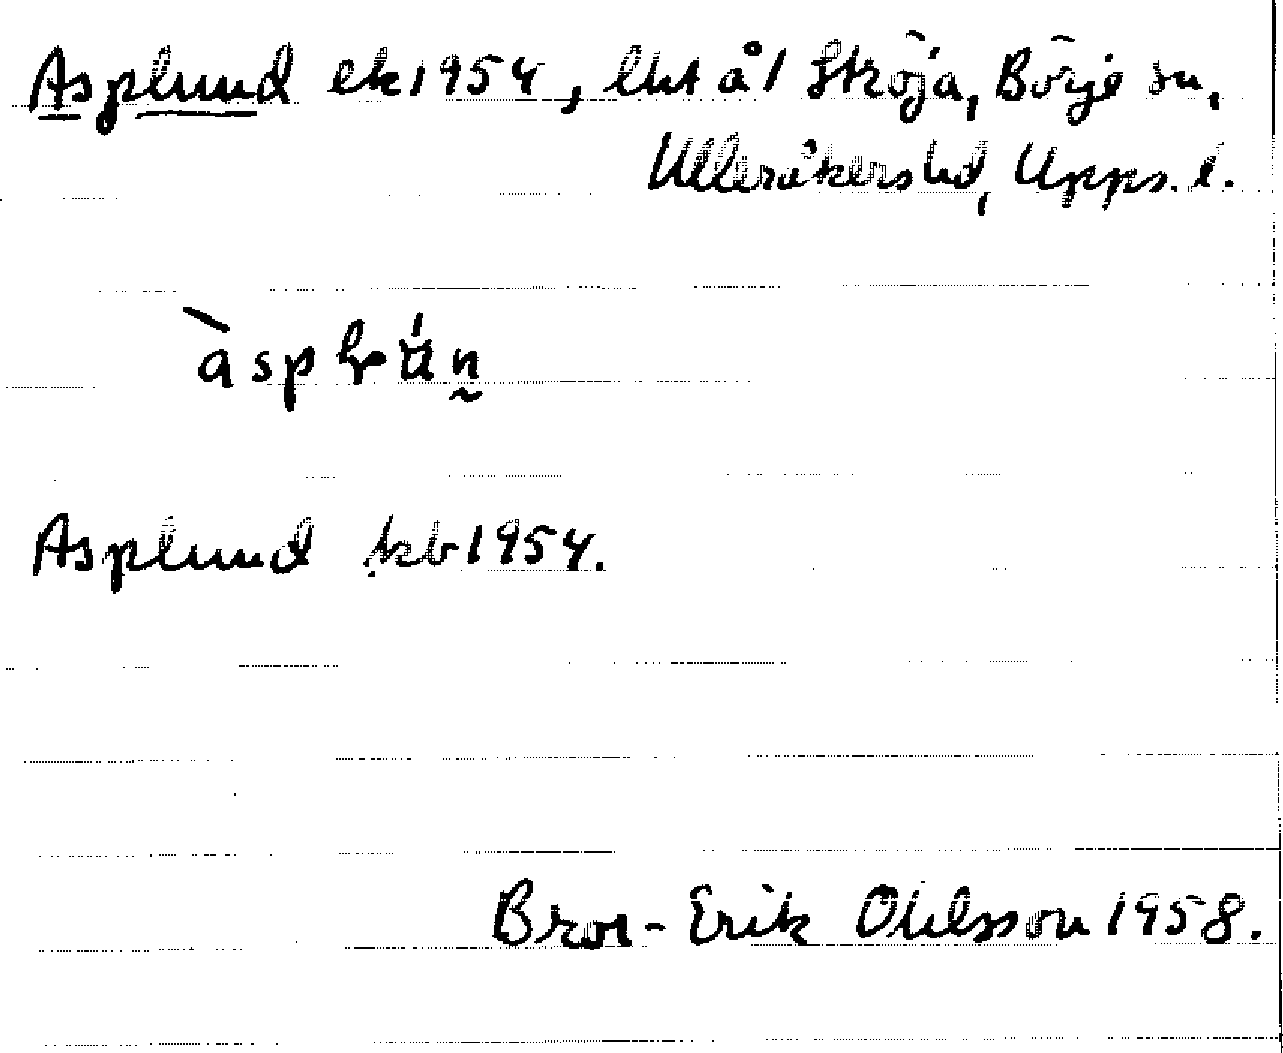 Asplund ek 1954, lht å 1 Ströja, Börje sn,
Ulleråkers hd, Upps. l.
Asplund kb 1954.
Bror-Erik Ohlsson 1958.